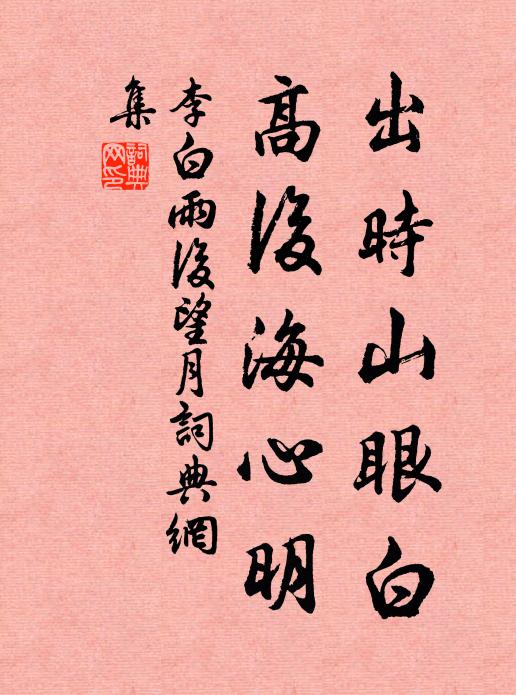 出時山眼白
高後海心明
李白雨後望月詞典網
集
詞典
網印